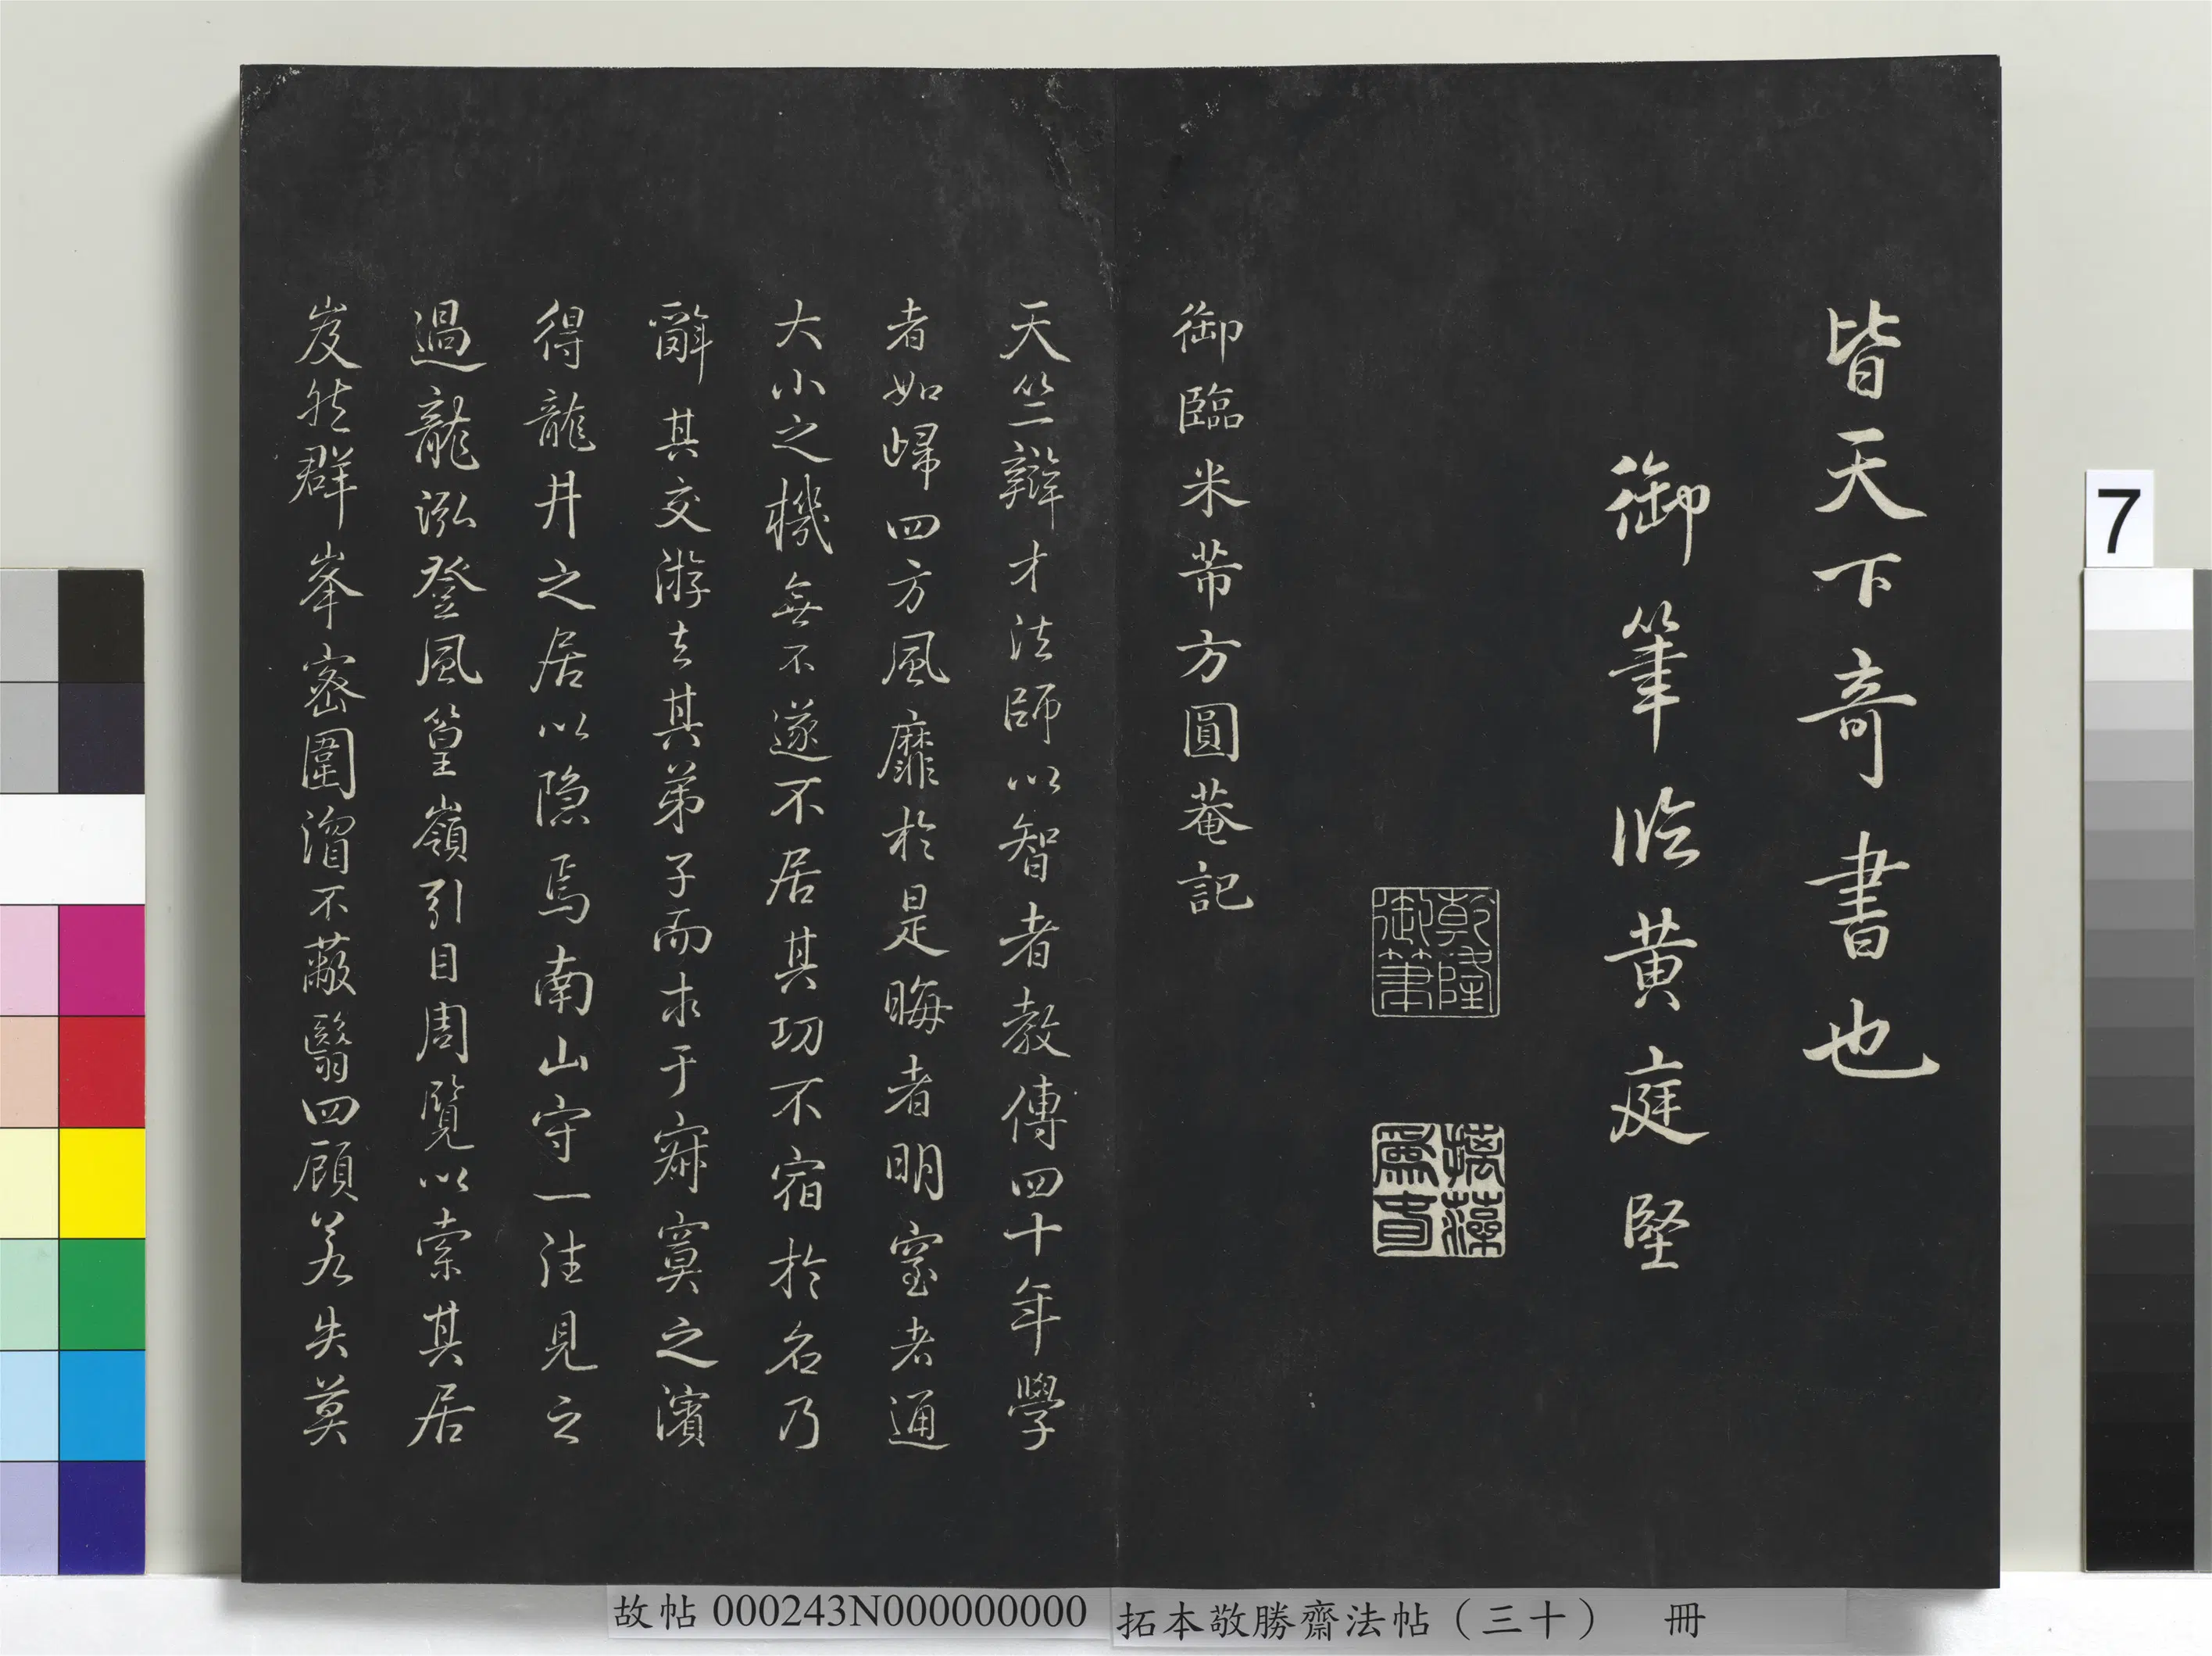 皆天下奇書也
御筆臨黄庭堅
乾隆
御筆
摛藻
爲春
御臨米芾方圓菴記
天竺辯才法師以智者教傳四十年學
者如歸四方風靡於是晦者明窒者通
大小之機無不遂不居其功不宿於名乃
辭其交游去其弟子而求于寂寞之濱
得龍井之居以隐焉南山守一往見之
過龍泓登風篁嶺引目周覽以索其居
岌然群峯密圍溜不蔽翳四顧若失莫
7
故帖 000243N000000000
拓本敬勝齋法帖（三十） 冊